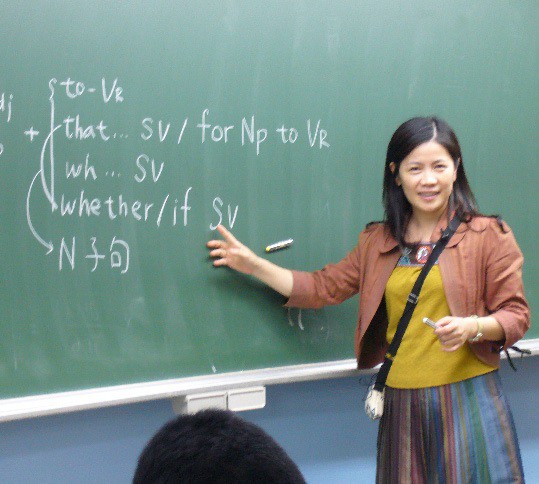 dj + to-VR
that... SV / for Np to VR
wh ... SV
whether/if SV
N子句